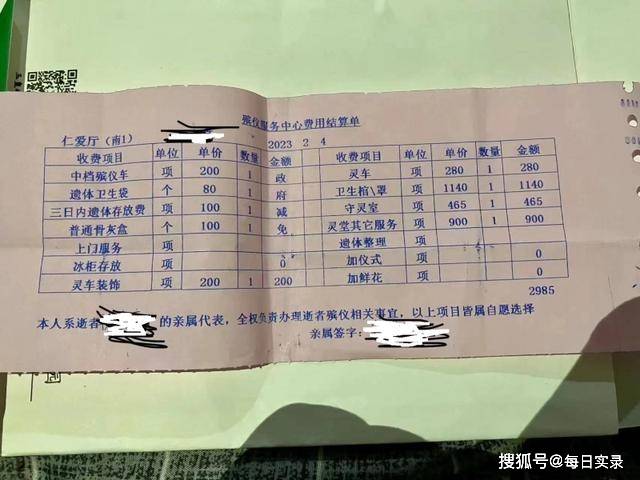 殡仪服务中心费用结算单
仁爱厅（南1） 2023 2 4
收费项目 单位 单价 数量 金额 收费项目 单位 单价 数量 金额
中档殡仪车 项 200 1 政 灵车 项 280 1 280
遗体卫生袋 个 80 1 府 卫生棺\罩 项 1140 1 1140
三日内遗体存放费 项 100 1 减 守灵室 项 465 1 465
普通骨灰盒 个 100 1 免 灵堂其它服务 项 900 1 900
上门服务 项 遗体整理 项
冰柜存放 项 0 加仪式 项 0
灵车装饰 项 200 1 200 加鲜花 项 0
2985
本人系逝者 的亲属代表，全权负责办理逝者殡仪相关事宜，以上项目皆属自愿选择
亲属签字：
搜狐号@每日实录